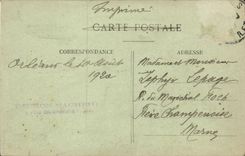 Imprimé
CARTE POSTALE
CORRESPONDANCE
ADRESSE
Orléans le 10 Août
1920
Madame et Monsieur
Zéphyr Lepage
R. du Maréchal Foch
Fère Champenoise
Marne